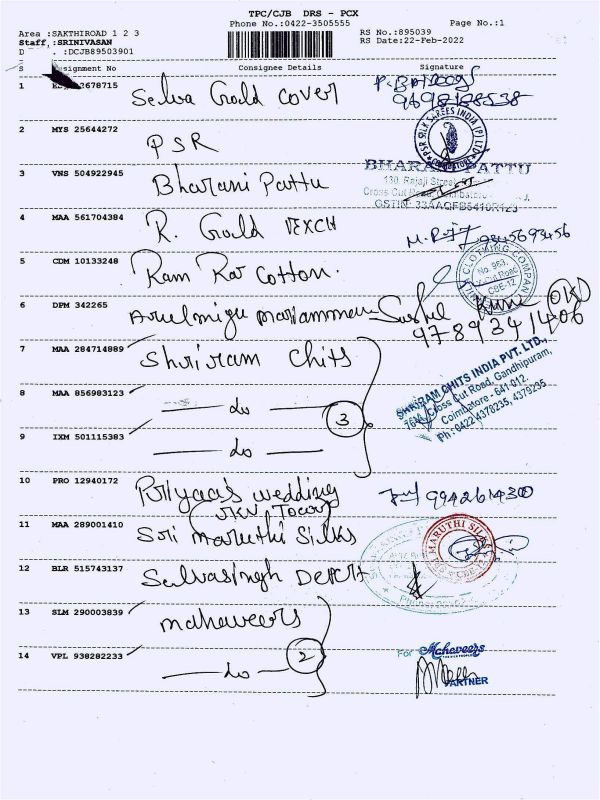 TPC/CJB DRS - PCX
Phone No.:0422-3505555
Page No.:1
Area :SAKTHIROAD 1 2 3
Staff :SRINIVASAN
D . :DCJB89503901
RS No.:895039
RS Date:22-Feb-2022
S signment No Consignee Details Signature
1 2678715 Selva Gould cover 9698188538
2 MYS 25644272 PSR
PSR SILK SAREES INDIA (P) LTD
3 VNS 504922945 Bharani Pattu
BHARANI PATTU
130, Rajaji Street
Cross Cut Road, Coimbatore
GSTIN: 33AAQFB5410R1Z3
4 MAA 561704384 R. Gould VEXCH
M. 9345693456
5 CDM 10133248 Ram Raj Cotton.
CLOTHING COMPANY
No. 963,
Cut Road
CBE-12
6 DPM 342265 Arulmigu mariamman
9789341406
7 MAA 284714889 Shriram Chits
SHRIRAM CHITS INDIA PVT. LTD.,
Cross Cut Road, Gandhipuram,
Coimbatore - 641 012.
Ph: 0422 4379235, 4379235
8 MAA 856983123 do 3
9 IXM 501115383 do
10 PRO 12940172 Priyaa's wedding
9942614300
11 MAA 289001410 Sri Maruthi Silks
MARUTHI SILKS
12 BLR 515743137 Selvasingh
13 SLM 290003839 mahaveers
14 VPL 938282233 do 2
For Mahaveers
PARTNER